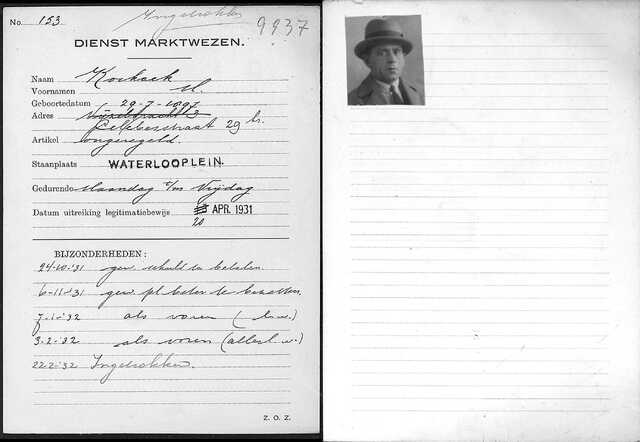 No. 153 Ingetrokken 9937
DIENST MARKTWEZEN.
Naam Korhaek
Voornamen M.
Geboortedatum 29-7-1897
Adres
Celebesstraat 29 hs.
Artikel ongeregeld.
Staanplaats WATERLOOPLEIN.
Gedurende Maandag t/m Vrijdag
Datum uitreiking legitimatiebewijs APR. 1931
20
BIJZONDERHEDEN:
24-10-'31 gew. schuld te betalen.
6-11-'31 gew. pl. beter te bezetten.
7-1-'32 als voren ( w.)
3-2-'32 als voren (allerl. w.)
22-2-'32 Ingetrokken.
Z. O. Z.